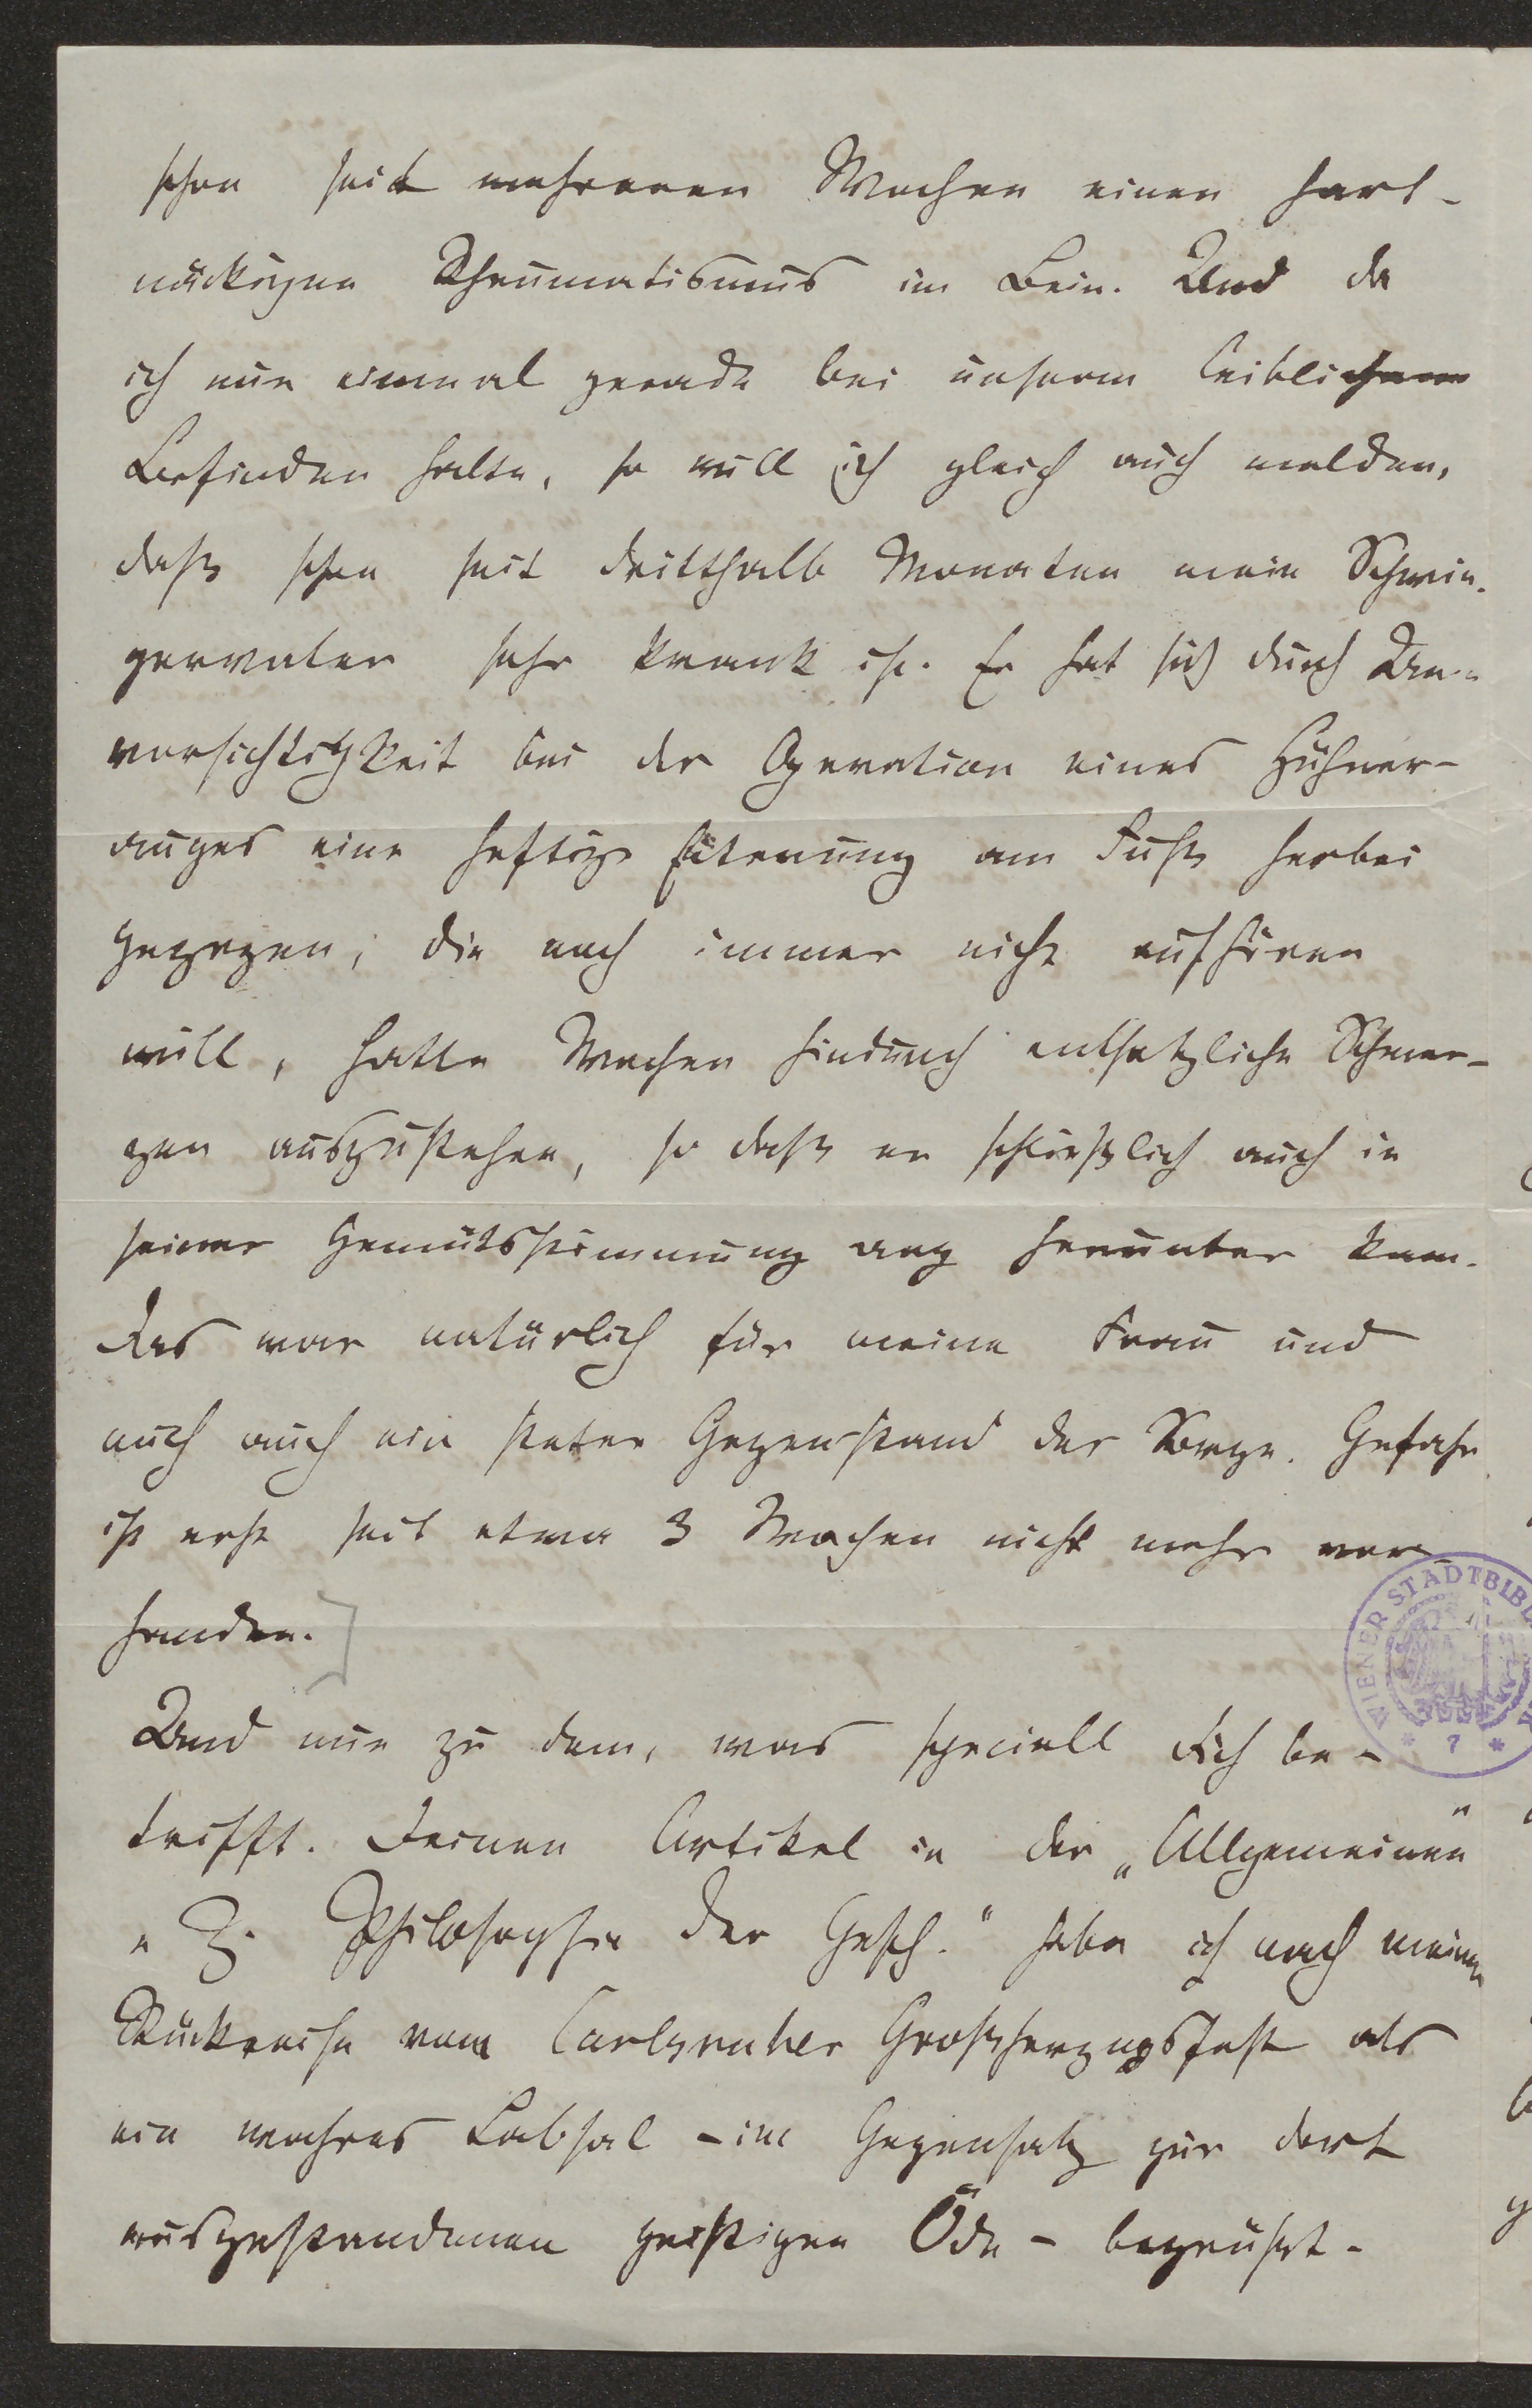 schon seit mehreren Wochen einen hart-
näckigen Rheumatismus im Bein. Und da
ich nun einmal gerade bei unserem leiblichen
Befinden halte, so will ich gleich auch melden,
daß schon seit dritthalb Monaten mein Schwie-
gervater sehr krank ist. Er hat sich durch Un-
vorsichtigkeit bei der Operation eines Hühner-
auges eine heftige Eiterung am Fuße herbei
gezogen, die noch immer nicht aufhören
will, hatte Wochen hindurch entsetzliche Schmer-
zen auszustehen, so daß er schließlich auch in
seiner Gemütsstimmung arg herunter kam.
Das war natürlich für meine Frau und
mich auch ein steter Gegenstand der Sorge. Gefahr
ist erst seit etwa 3 Wochen nicht mehr vor-
handen.]
Und nun zu dem, was speciell Dich be-
trifft. Deinen Artikel in der „Allgemeinen"
„Z. Philosophie der Gesch." habe ich nach meiner
Rückreise vom Carlsruher Großherzogsfest als
ein wahres Labsal – im Gegensatz zur dort
ausgestandenen geistigen Öde – begrüßt.
WIENER STADTBIBL
* 7 *